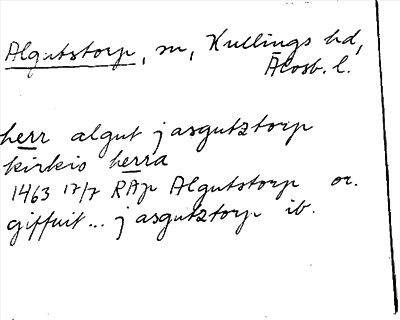 Algutstorp, sn, Kullings hd,
Älvsb. l.
herr algut j asgutztorp
kirkis herra
1463 17/7 RAp Algutstorp or.
giffuit... j asgutztorp ib.